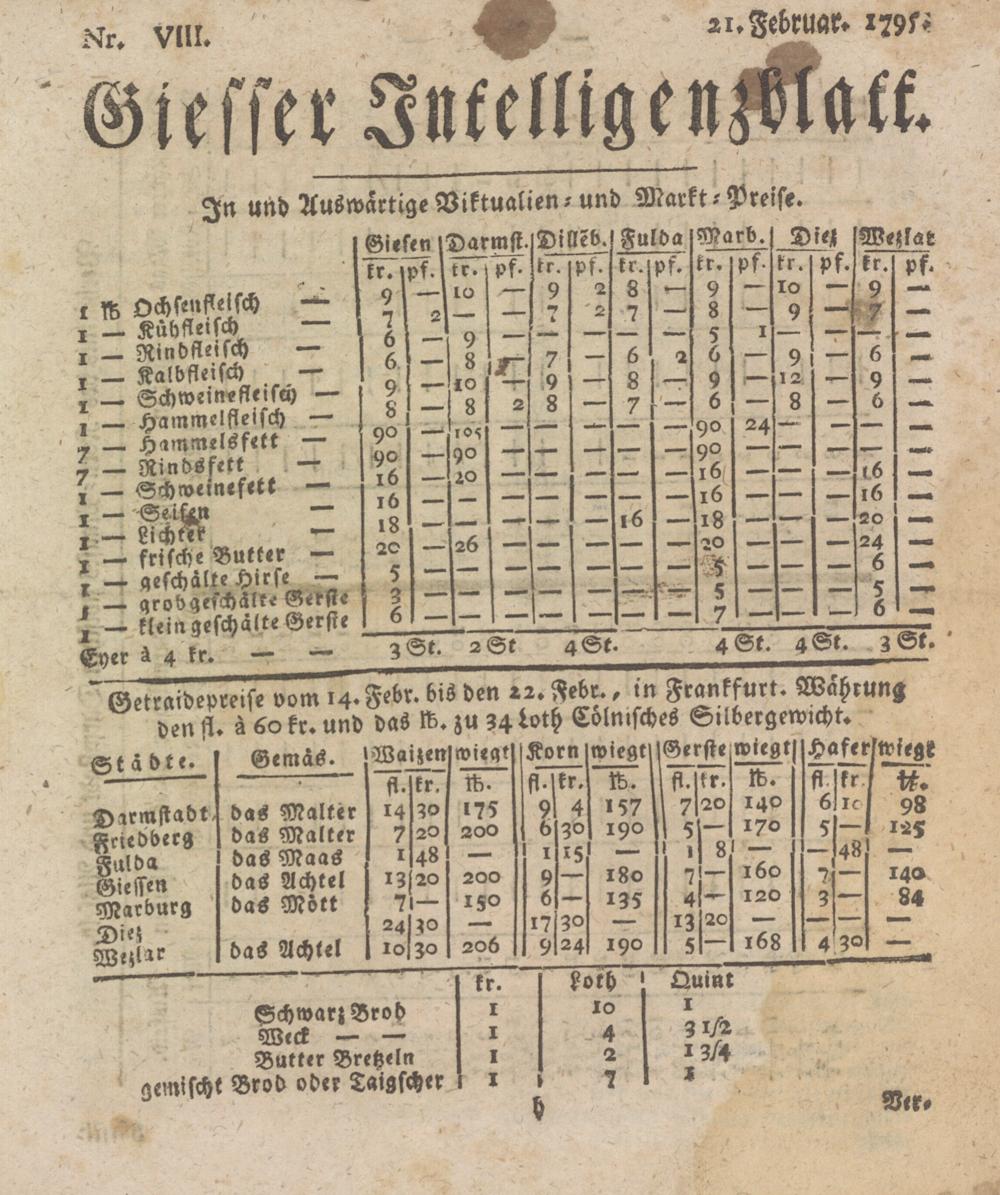 Nr. VIII. 21. Februar. 1795.
Giesser Intelligenzblatt.
In und Auswärtige Viktualien- und Markt-Preise.
Giesen Darmst. Dillēb. Fulda Marb. Diez Wezlar
kr. pf. kr. pf. kr. pf. kr. pf. kr. pf. kr. pf. kr. pf.
1 ℔ Ochsenfleisch — 9 — 10 — 9 2 8 — 9 — 10 — 9 —
1 — Kühfleisch — 7 2 — — 7 2 7 — 8 — 9 — 7 —
1 — Rindfleisch — 6 — 9 — — — — — 5 1 — — — —
1 — Kalbfleisch — 6 — 8 — 7 — 6 2 6 — 9 — 6 —
1 — Schweinefleisch — 9 — 10 — 9 — 8 — 9 — 12 — 9 —
1 — Hammelfleisch — 8 — 8 2 8 — 7 — 6 — 8 — 6 —
7 — Hammelsfett — 90 — 105 — — — — — 90 24 — — — —
7 — Rindsfett — 90 — 90 — — — — — 90 — — — — —
1 — Schweinefett — 16 — 20 — — — — — 16 — — — 16 —
1 — Seifen — 16 — — — — — — — 16 — — — 16 —
1 — Lichter — 18 — — — — — 16 — 18 — — — 20 —
1 — frische Butter — 20 — 26 — — — — — 20 — — — 24 —
1 — geschälte Hirse — 5 — — — — — — — 5 — — — 6 —
1 — grob geschälte Gerste 3 — — — — — — — 5 — — — 5 —
1 — klein geschälte Gerste 6 — — — — — — — 7 — — — 6 —
Eyer à 4 kr. — — 3 St. 2 St 4 St. 4 St. 4 St. 3 St.
Getraidepreise vom 14. Febr. bis den 22. Febr., in Frankfurt. Währung
den fl. à 60 kr. und das ℔. zu 34 Loth Cölnisches Silbergewicht.
Städte. Gemäs. Waizen wiegt Korn wiegt Gerste wiegt Hafer wiegt
fl. kr. ℔. fl. kr. ℔. fl. kr. ℔. fl. kr. ℔.
Darmstadt das Malter 14 30 175 9 4 157 7 20 140 6 10 98
Friedberg das Malter 7 20 200 6 30 190 5 — 170 5 — 125
Fulda das Maas 1 48 — 1 15 — 1 8 — — 48 —
Giessen das Achtel 13 20 200 9 — 180 7 — 160 7 — 140
Marburg das Mött 7 — 150 6 — 135 4 — 120 3 — 84
Diez 24 30 — 17 30 — 13 20 — — — —
Wezlar das Achtel 10 30 206 9 24 190 5 — 168 4 30 —
kr. Loth Quint
Schwarz Brod 1 10 1
Weck — — 1 4 3 1/2
Butter Bretzeln 1 2 1 3/4
gemischt Brod oder Taigscher 1 7 1
h Ver-